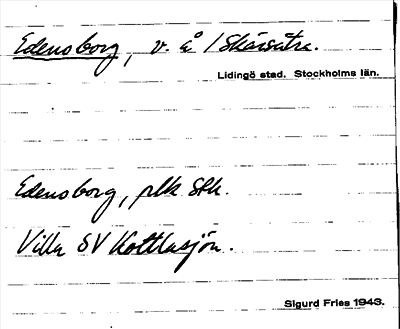 Edensborg, v. å /Skärsätra.
Lidingö stad. Stockholms län.
Edensborg, plk Stk.
Villa SV Kottlasjön.
Sigurd Fries 1943.